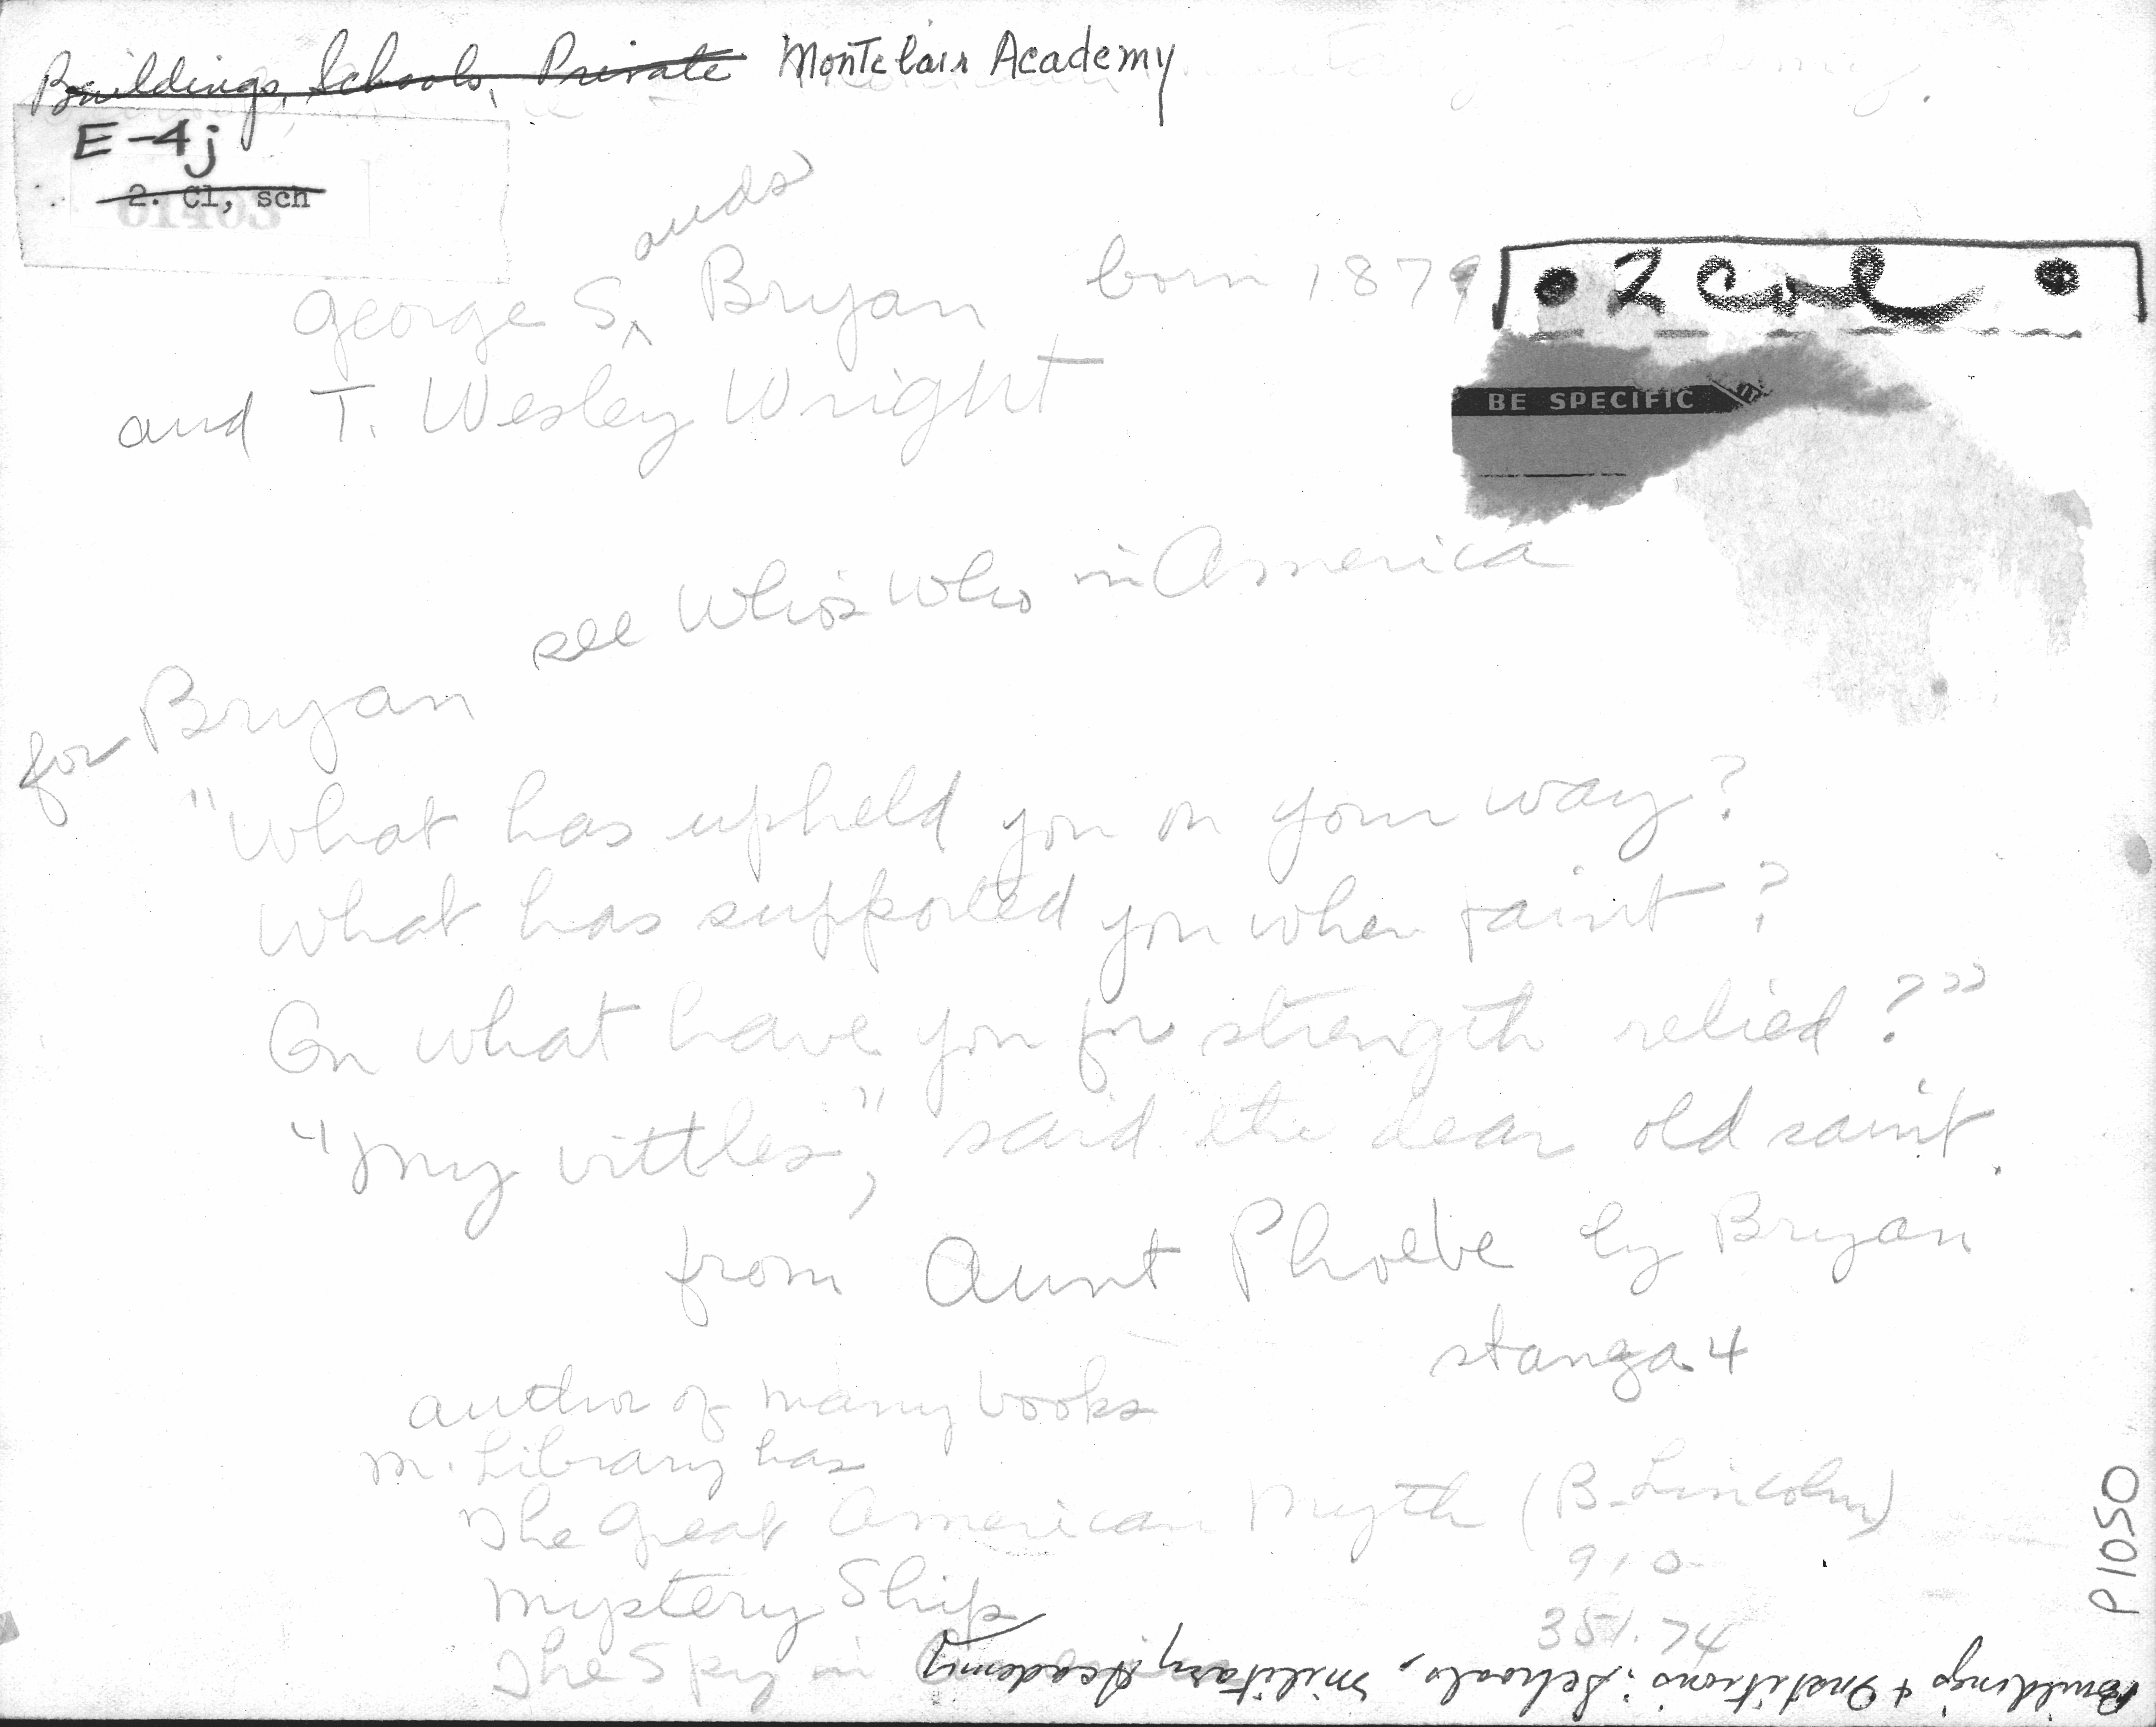 Buildings, Schools, Private Montclair Academy
E-4j
2. Cl, sch
01403
ands
George S. Bryan born 1879
and T. Wesley Wright
2 Col
BE SPECIFIC
see Who's Who in America
for Bryan
"What has upheld you on your way?
What has supported you when faint?
On what have you for strength relied?"
"My vittles," said the dear old saint.
from Aunt Phoebe by Bryan
stanza 4
author of many books
M. Library has
The Great American Myth (B-Lincoln)
Mystery Ship 910
The Spy in 351.74
Buildings & Institutions: Schools, Military Academy
P1050